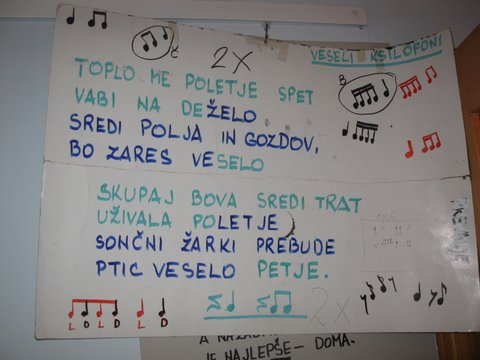 2X
VESELI KSILOFONI
TOPLO ME POLETJE SPET
VABI NA DEŽELO
SREDI POLJA IN GOZDOV,
BO ZARES VESELO
B
SKUPAJ BOVA SREDI TRAT
UŽIVALA POLETJE
SONČNI ŽARKI PREBUDE
PTIC VESELO PETJE.
L D L D L D
2x
JE NAJLEPŠE - DOMA.